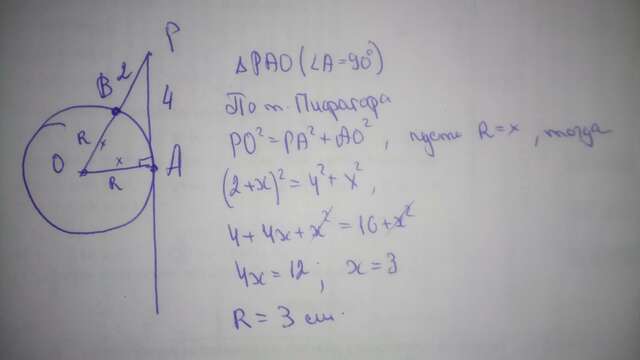 P
B 2
4
R x
O
x
R
A
ΔPAO (∠A=90°)
По т. Пифагора
PO² = PA² + AO², пусть R = x, тогда
(2+x)² = 4² + x²,
4 + 4x + x² = 16 + x²
4x = 12; x = 3
R = 3 см.